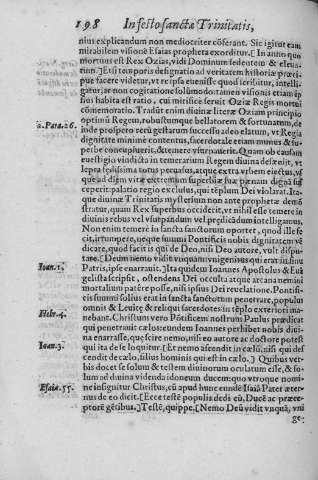 198 In festo sanctæ Trinitatis,
nius explicandum non mediocriter cōferant. Sic igitur eam
mirabilem visionē Esaias propheta exorditur. [In anno quo
mortuus est Rex Ozias, vidi Dominum sedentem & eleua-
tum.] Etsi temporis designatio ad veritatem historiæ præci-
pue facere videtur, vt re ipsa euenisse quod scribitur, intelli-
gatur, ac non cogitatione solùmodo: tamen visionis etiam ip-
sius habita est ratio, cui mirificè seruit Oziæ Regis mortui
cōmemoratio. Tradūt enim diuinæ literæ Oziam principio
2. Para. 26. optimū Regem, robustumque bellatorem & fortunatum, de
inde prospero rerū gestarum successu adeo elatum, vt Regia
dignitate minimè contentus, sacerdotale etiam munus & su-
perbè concupiuerit, & temerè vsurpauerit. Quam ob causam
è vestigio vindicta in temerarium Regem diuina desæuiit, vt
lepra fœdissima totus percussus, atque extra vrbem eiectus, vs
que ad diem vitæ extremum superbiæ suæ pœnam dignā sus
ceperit: palatio regio exclusus, qui tēplum Dei violarat. Ita-
que diuinæ Trinitatis mysterium non ante prophetæ demō
stratur, quam Rex superbus occiderit, vt nihil esse temerè in
diuinis rebus vel vsurpandum vel prædicādum intelligamus.
Non enim temerè in sancta sanctorum oportet, quod ille fe-
cit, irrumpere, neque summi Pontificis nobis dignitatem vē
dicare, quod facit is qui de Deo, nisi Deo autore, vult dispu-
Ioan. 1. tare. [Deum nemo vidit vnquam: vnigenitus qui erat in sinu
Patris, ipse enarrauit.] Ita quidem Ioannes Apostolus & Euā
gelista scripsit, ostendens Dei occulta atque arcana nemini
mortalium patêre posse, nisi ipsius Dei reuelatione. Pontifi-
cis summi solius erat in sancta sanctorum penetrare, populus
omnis & Leuitę & reliqui sacerdotes in tēplo exteriori ma-
Hebr. 4. nebant. Christum verò Pontificem nostrum Paulus prædicat
qui penetrauit cælos: eundem Ioannes perhibet nobis diui-
na enarrasse, quæ scire nemo, nisi eo autore ac doctore potest
Ioan. 3. qui ita de se loquitur. [Et nemo ascendit in cælū, nisi qui des
cendit de cælo, filius hominis qui est in cælo.] Quibus ver-
bis docet se solum & testem diuinorum oculatum esse, & so-
lum ad diuina videnda idoneum ducem: quo vtroque nomi-
Esaiæ. 55. ne insignitur Christus, cū apud hunc eundē Isaiā Pater æter-
nus de eo dicit. [Ecce testē populis dedi eū, Ducē ac præce-
ptorē gētibus.] Testē, quippe. [Nemo Deū vidit vnquā, vni
ge-